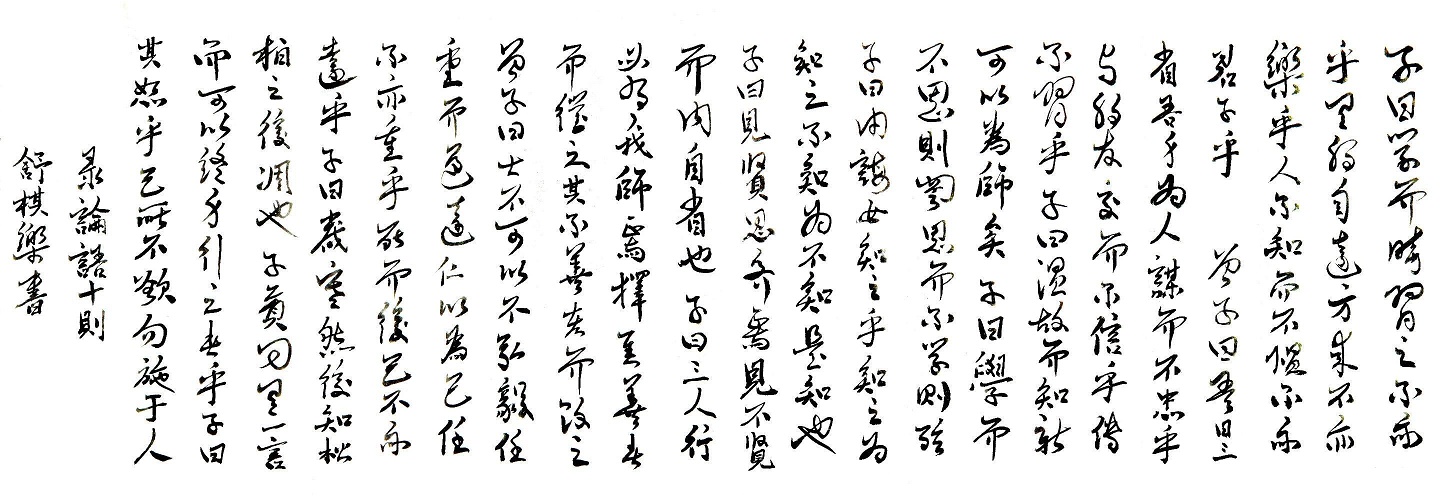 子曰學而時習之不亦
乎有朋自遠方來不亦
樂乎人不知而不慍不亦
君子乎 曾子曰吾日三
省吾身為人謀而不忠乎
与朋友交而不信乎傳
不習乎子曰溫故而知新
可以為師矣子曰學而
不思則罔思而不學則殆
子曰由誨女知之乎知之為
知之不知為不知是知也
子曰見賢思齊焉見不賢
而內自省也子曰三人行
必有我師焉擇其善者
而從之其不善者而改之
曾子曰士不可以不弘毅任
重而道遠仁以為己任
不亦重乎死而後已不亦
遠乎子曰歲寒然後知松
柏之後凋也子貢問有一言
而可以終身行之者乎子曰
其恕乎己所不欲勿施于人
录論語十則
舒棋樂書